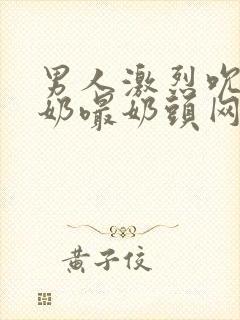 男人激烈吮
奶嘬奶頭网
黄子佼